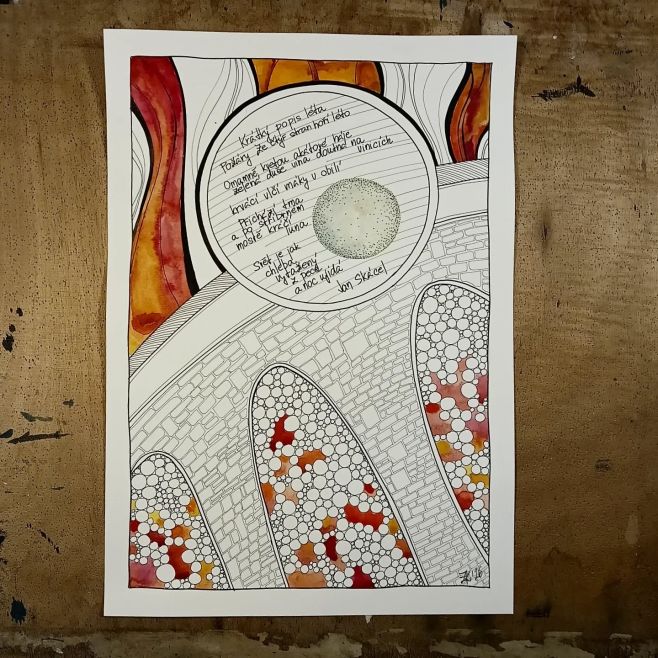 Krátký popis léta
Požáry že když stranhoří léto
Omamně kvetou akátové háje
zelená duše vína doutná na vinicích
krvácí vlčí máky v obilí
Přichází tma
a po stříbrném
mostě kráčí
luna
Svět je jak
chleba
vytažený
z pece
a noc ujídá
Jan Skácel